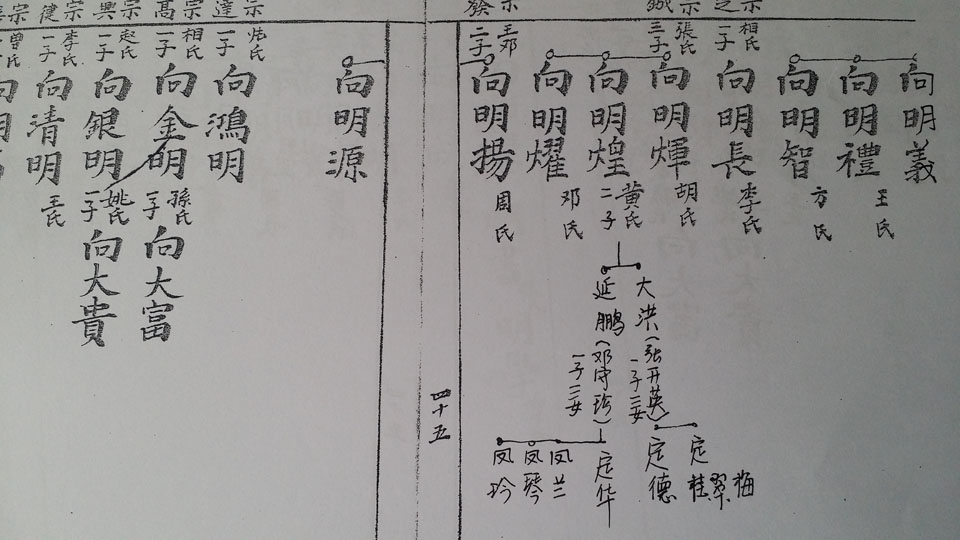 向明義
向明禮
王氏
向明智
方氏
之
相氏
一子
向明長
李氏
宗
張氏
三子
向明煇
胡氏
向明煌
黃氏
二子
大洪(张开英)
一子三女
定德
定桂
翠
梅
延鹏(邓守珍)
一子三女
定华
凤兰
凤琴
凤珍
向明燿
邓氏
宗發
王邓
二子
向明揚
周氏
四十五
向明源
宗達
一子
向鴻明
宗高
相氏
一子
向金明
孫氏
一子
向大富
宗興
赵氏
一子
向銀明
姚氏
一子
向大貴
宗健
李氏
一子
向清明
王氏
宗
曾氏
一子
向明